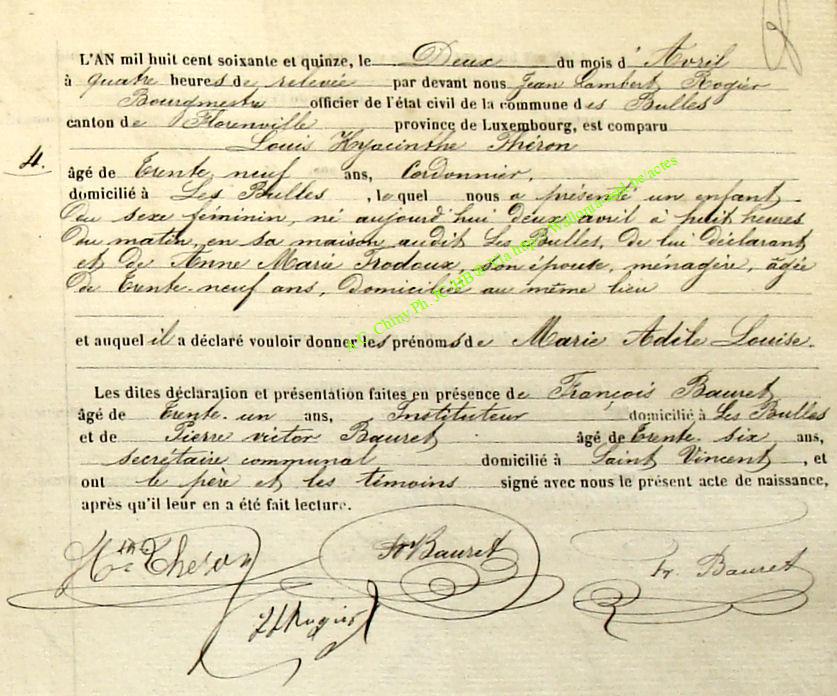 L'AN mil huit cent soixante et quinze, le Deux du mois d' Avril
à quatre heures de relevée par devant nous Jean Lambert Rogier
Bourgmestre officier de l'état civil de la commune des Bulles
canton de Florenville province de Luxembourg, est comparu
Louis Hyacinthe Théron
4.
âgé de Trente neuf ans, Cordonnier,
domicilié à Les Bulles, lequel nous a présenté un enfant
du sexe féminin, né aujourd'hui deux avril à huit heures
du matin, en sa maison audit Les Bulles, de lui déclarant
et de Anne Marie Frodoux, son épouse, ménagère, âgée
de Trente-neuf ans, Domiciliée au même lieu
et auquel il a déclaré vouloir donner les prénoms de Marie Adile Louise.
Les dites déclaration et présentation faites en présence de François Bauret
âgé de Trente-un ans, Instituteur domicilié à Les Bulles
et de Pierre victor Bauret âgé de Trente-six ans,
secrétaire communal domicilié à Saint Vincent, et
ont le père et les témoins signé avec nous le présent acte de naissance,
après qu'il leur en a été fait lecture.
Theron
Bauret
fr Bauret
JLRogier